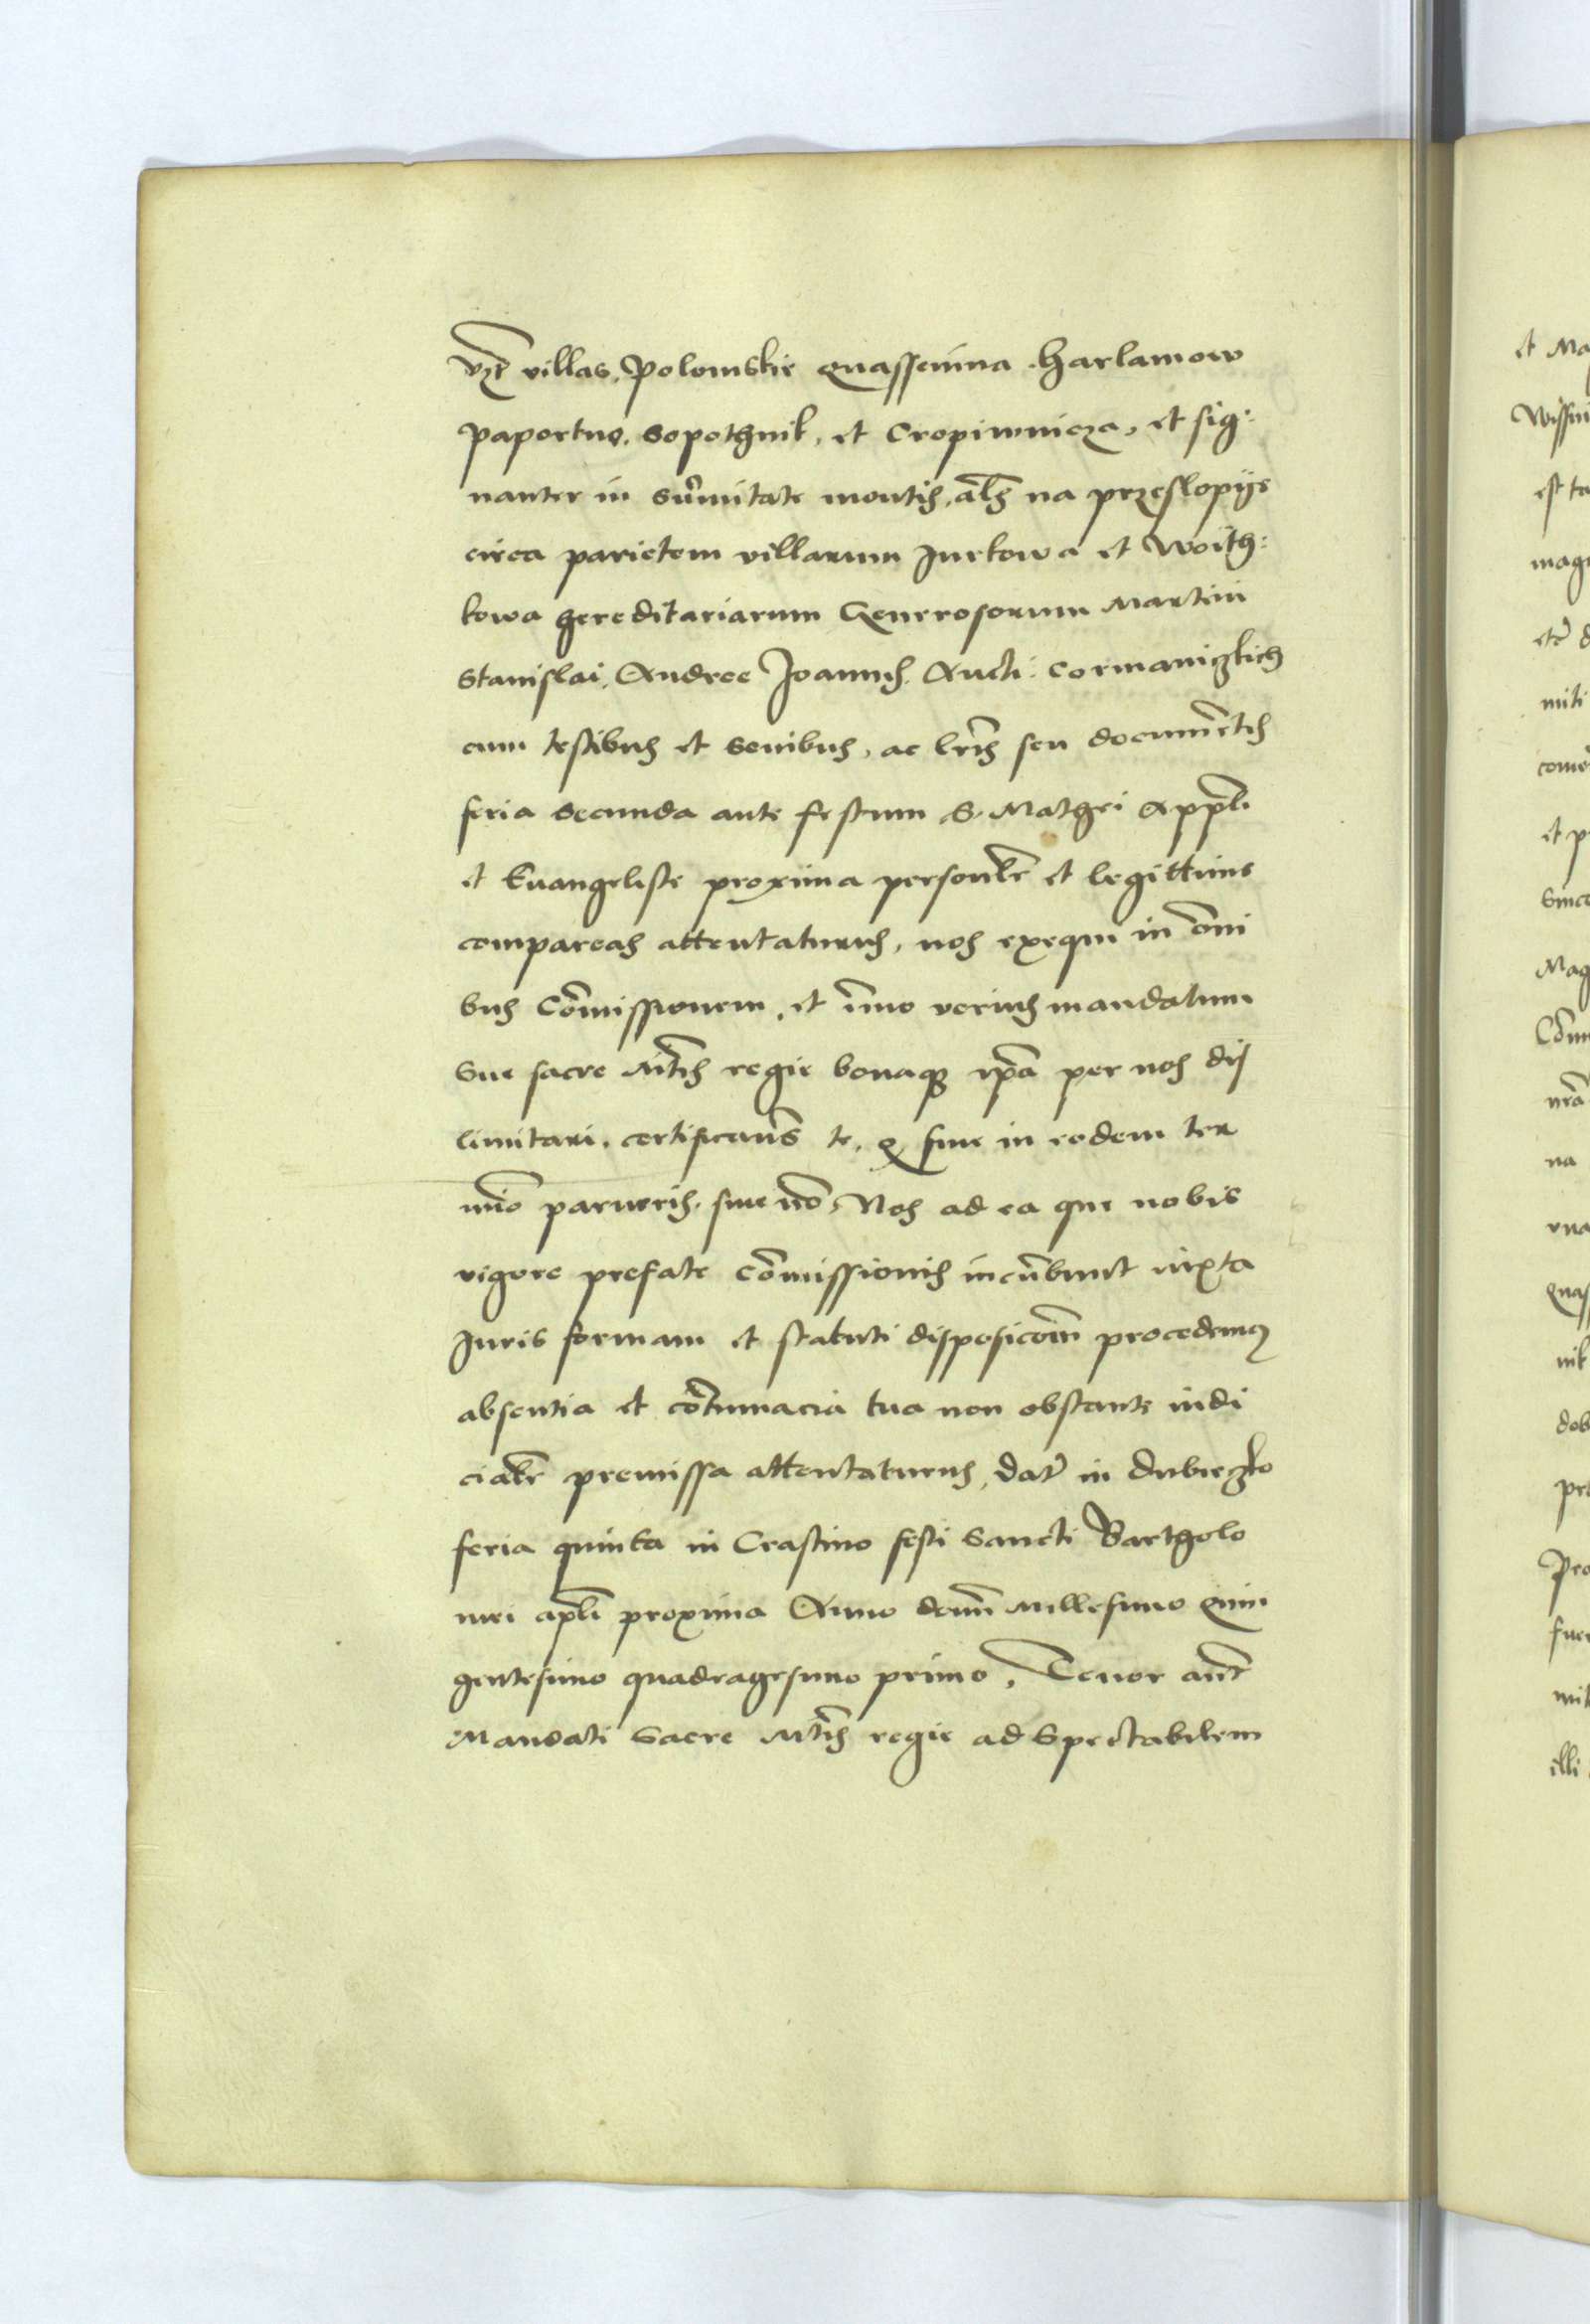 vzt villas, Polomskie Quassenina. Harlamow
Paportno, Sopothnik, et Cropiwnicza, et sig:
nanter in sum̄itate montis, als na przeslopije
circa parietem villarum Jurkowa et Woith:
kowa hereditariarum Generosorum Martini
Stanislai, Andree Joannis, Aucti, Cormaniczkich
cum testibus et senibus, ac lris seu documētis
feria secunda ante festum S. Mathei Appli
et Euangeliste proxima personlr et legittime
compareas attentaturus, nos exequi in om̄i
bus Com̄issionem, et im̄o verius mandatum
Sue sacre Mtis regie bonaqz ipā per nos dis
limitari, certificans te, qz siue in eodem ter
mio parueris, siue nō, Nos ad ea que nobis
vigore prefate Com̄issionis incūbunt iuxta
Juris formam et statuti disposicoēm procedemus
absentia et cōtumacia tua non obstante iudi
cialr premissa attentaturus, dat in Dubieczko
feria quinta in Crastino festi Sancti Bartholo
mei apli proxima Anno domī Millesimo quin
gentesimo quadragesimo primo, Tenor aut
Mandati Sacre Mtis regie ad Spectabilem
et Ma
est ta
mag
miti
et p
Mag
na
vna
nik
dob
illi